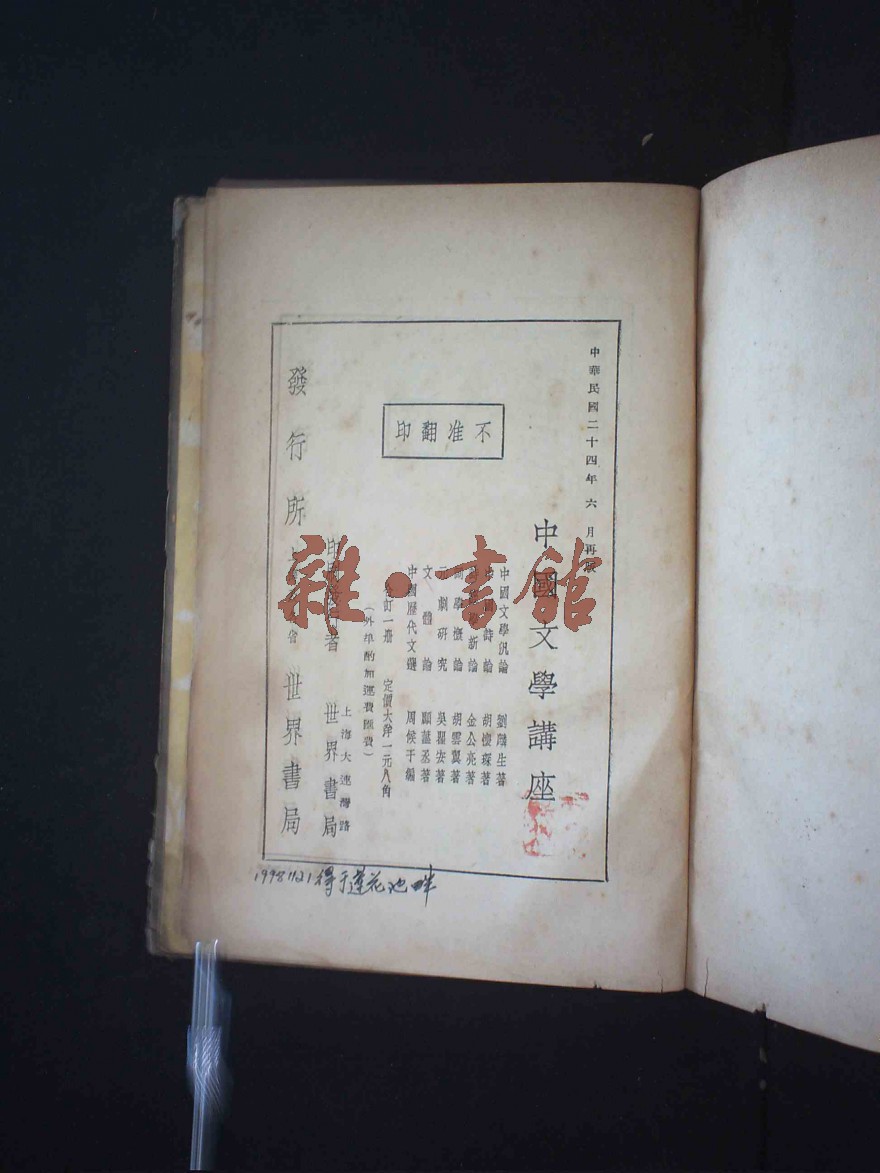 中華民國二十四年六月再版
不准翻印
中國文學講座
中國文學汎論 劉麟生著
詩論 胡懷琛著
新論 金公亮著
詞學概論 胡雲翼著
元劇研究 吳瞿安著
文體論 顧藎丞著
中國歷代文選 周侯于編
合訂一册 定價大洋一元八角
(外埠酌加運費匯費)
上海大連灣路
印刷者 世界書局
發行所 世界書局
雜·書館
1998 11 21 得于蓮花池畔